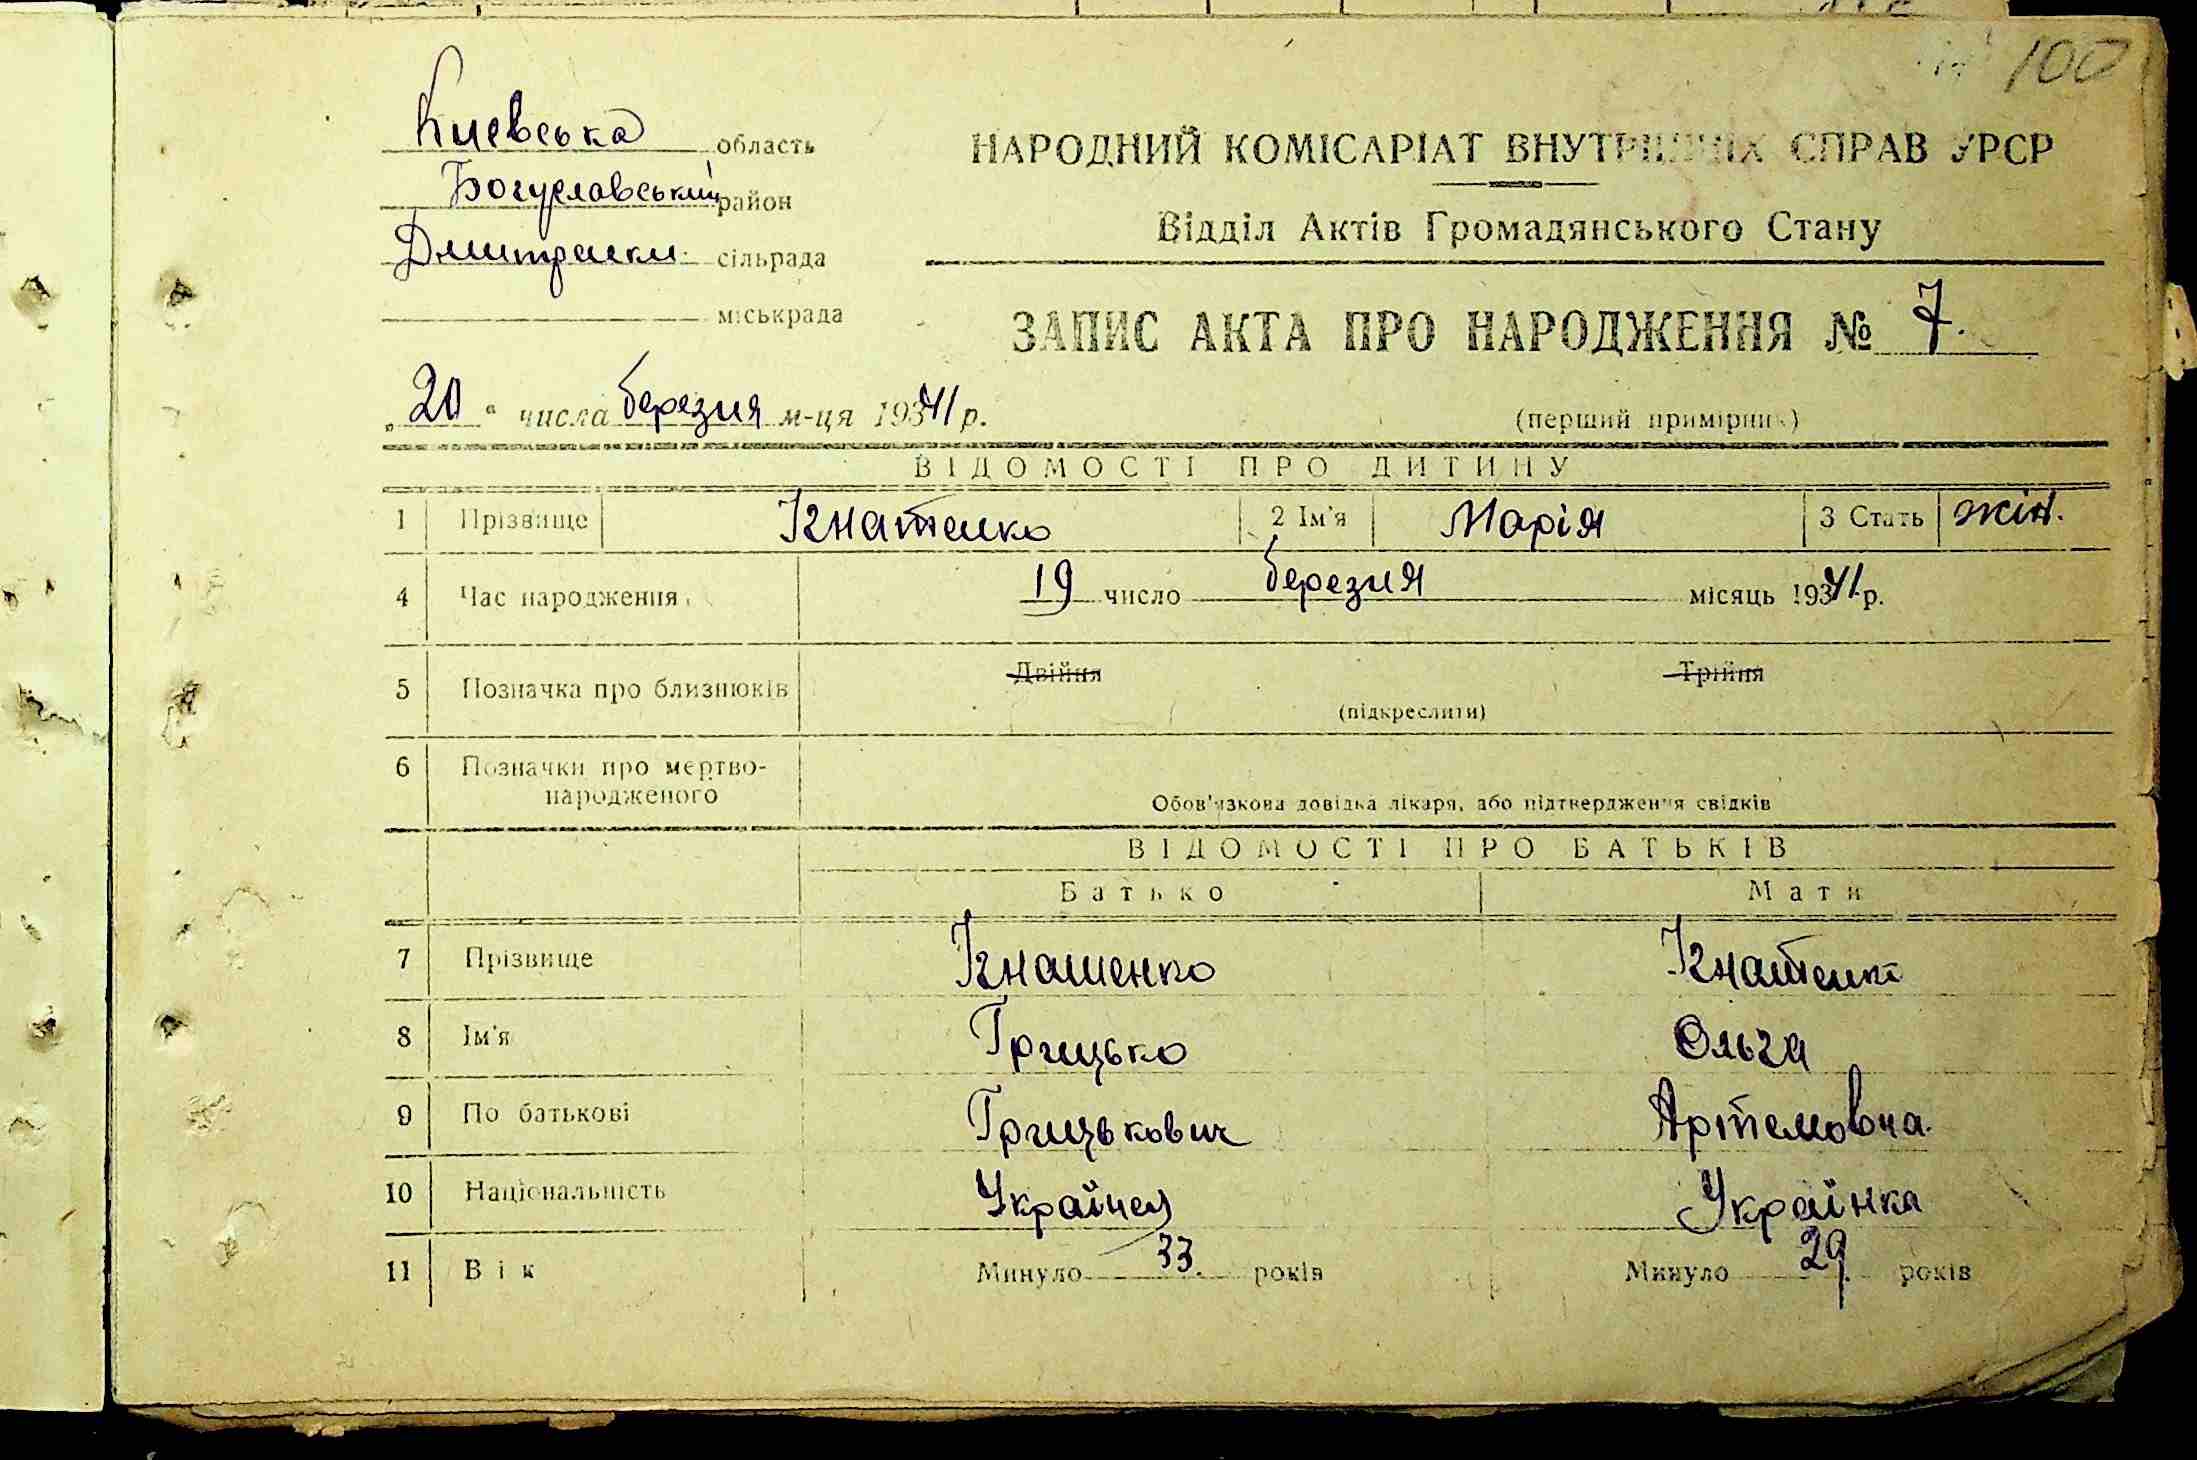 100
Киевська область
Богуславський район
Дмитренки сільрада
міськрада
НАРОДНИЙ КОМІСАРІАТ ВНУТРІШНІХ СПРАВ УРСР
Відділ Актів Громадянського Стану
ЗАПИС АКТА ПРО НАРОДЖЕННЯ № 7.
„20“ числа березня м-ця 1941 р.
(перший примірник)
ВІДОМОСТІ ПРО ДИТИНУ
1 Прізвище Ігнатенко 2 Ім'я Марія 3 Стать жін.
4 Час народження 19 число березня місяць 1941 р.
5 Позначка про близнюків Двійня Трійня
(підкреслити)
6 Позначки про мертво-
народженого
Обов'язкова довідка лікаря, або підтвердження свідків
ВІДОМОСТІ ПРО БАТЬКІВ
Батько Мати
7 Прізвище Ігнатенко Ігнатенко
8 Ім'я Грицько Ольга
9 По батькові Грицькович Артемовна.
10 Національність Українец Українка
11 Вік Минуло 33. років Минуло 29. років